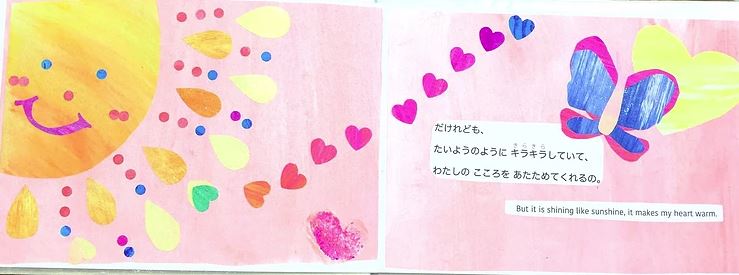 だけれども、
たいようのように キラキラしていて、
きらきら
わたしの こころを あたためてくれるの。
But it is shining like sunshine, it makes my heart warm.